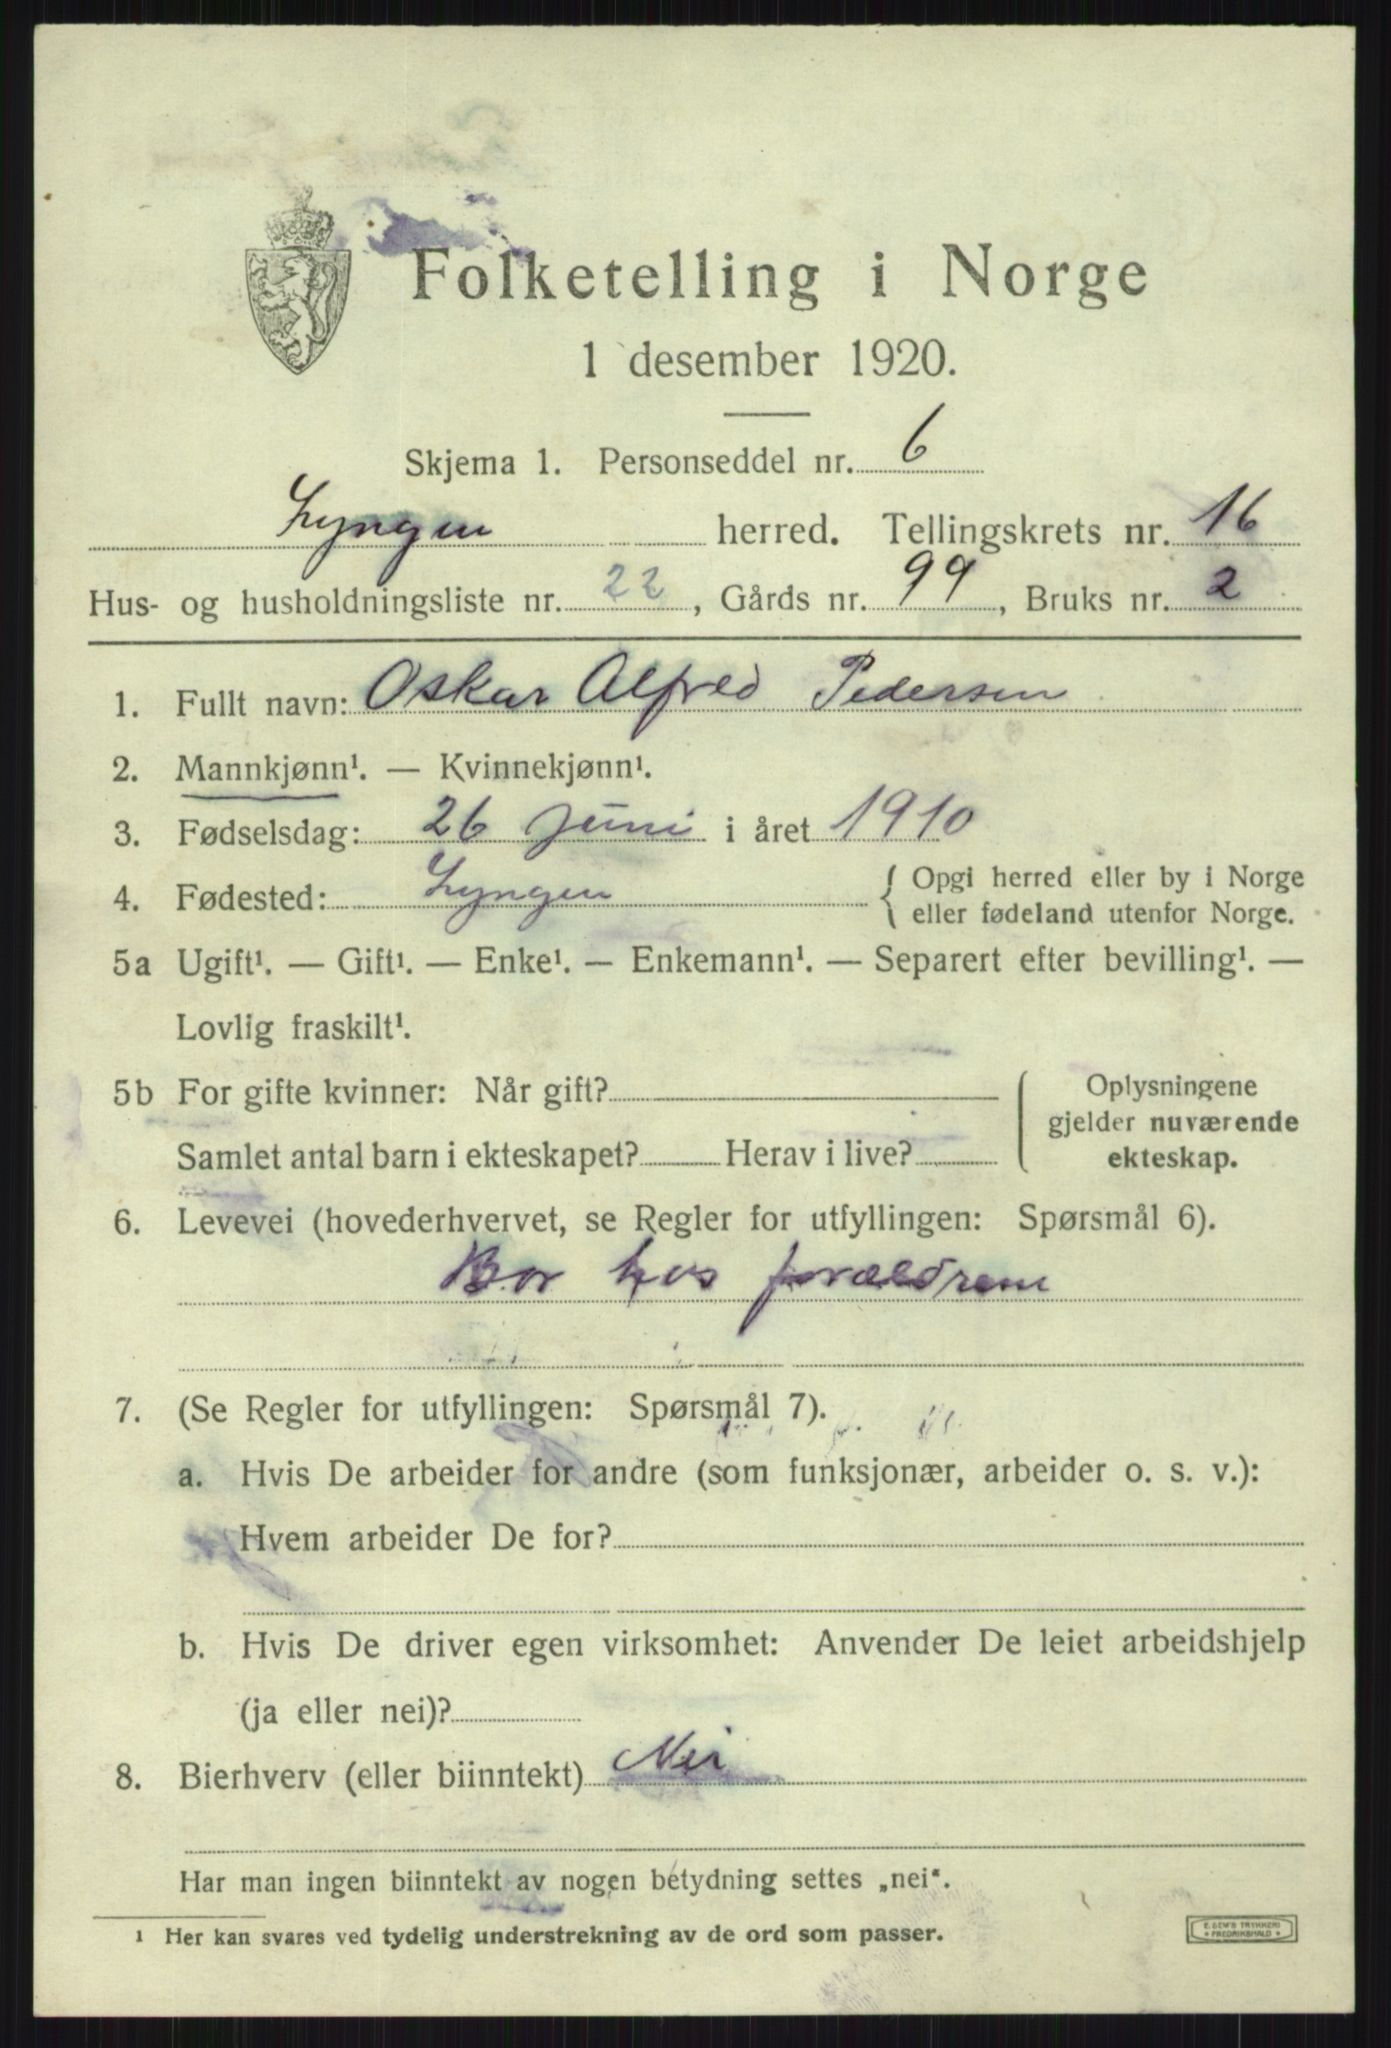 Folketelling i Norge
1 desember 1920.
Skjema 1. Personseddel nr. 6
Lyngen herred. Tellingskrets nr. 16
Hus- og husholdningsliste nr. 22, Gårds nr. 99, Bruks nr. 2
1. Fullt navn: Oskar Alfred Pedersen
2. Mannkjønn¹. — Kvinnekjønn¹.
3. Fødselsdag: 26 juni i året 1910
4. Fødested: Lyngen { Opgi herred eller by i Norge
eller fødeland utenfor Norge.
5a Ugift¹. — Gift¹. — Enke¹. — Enkemann¹. — Separert efter bevilling¹. —
Lovlig fraskilt¹.
5b For gifte kvinner: Når gift?
Samlet antal barn i ekteskapet? Herav i live?
Oplysningene
gjelder nuværende
ekteskap.
6. Levevei (hovederhvervet, se Regler for utfyllingen: Spørsmål 6).
Bor hos forældrene
7. (Se Regler for utfyllingen: Spørsmål 7).
a. Hvis De arbeider for andre (som funksjonær, arbeider o. s. v.):
Hvem arbeider De for?
b. Hvis De driver egen virksomhet: Anvender De leiet arbeidshjelp
(ja eller nei)?
8. Bierhverv (eller biinntekt) Nei
Har man ingen biinntekt av nogen betydning settes „nei“.
¹ Her kan svares ved tydelig understrekning av de ord som passer.
E. SEM'S TRYKKERI
FREDRIKSHALD